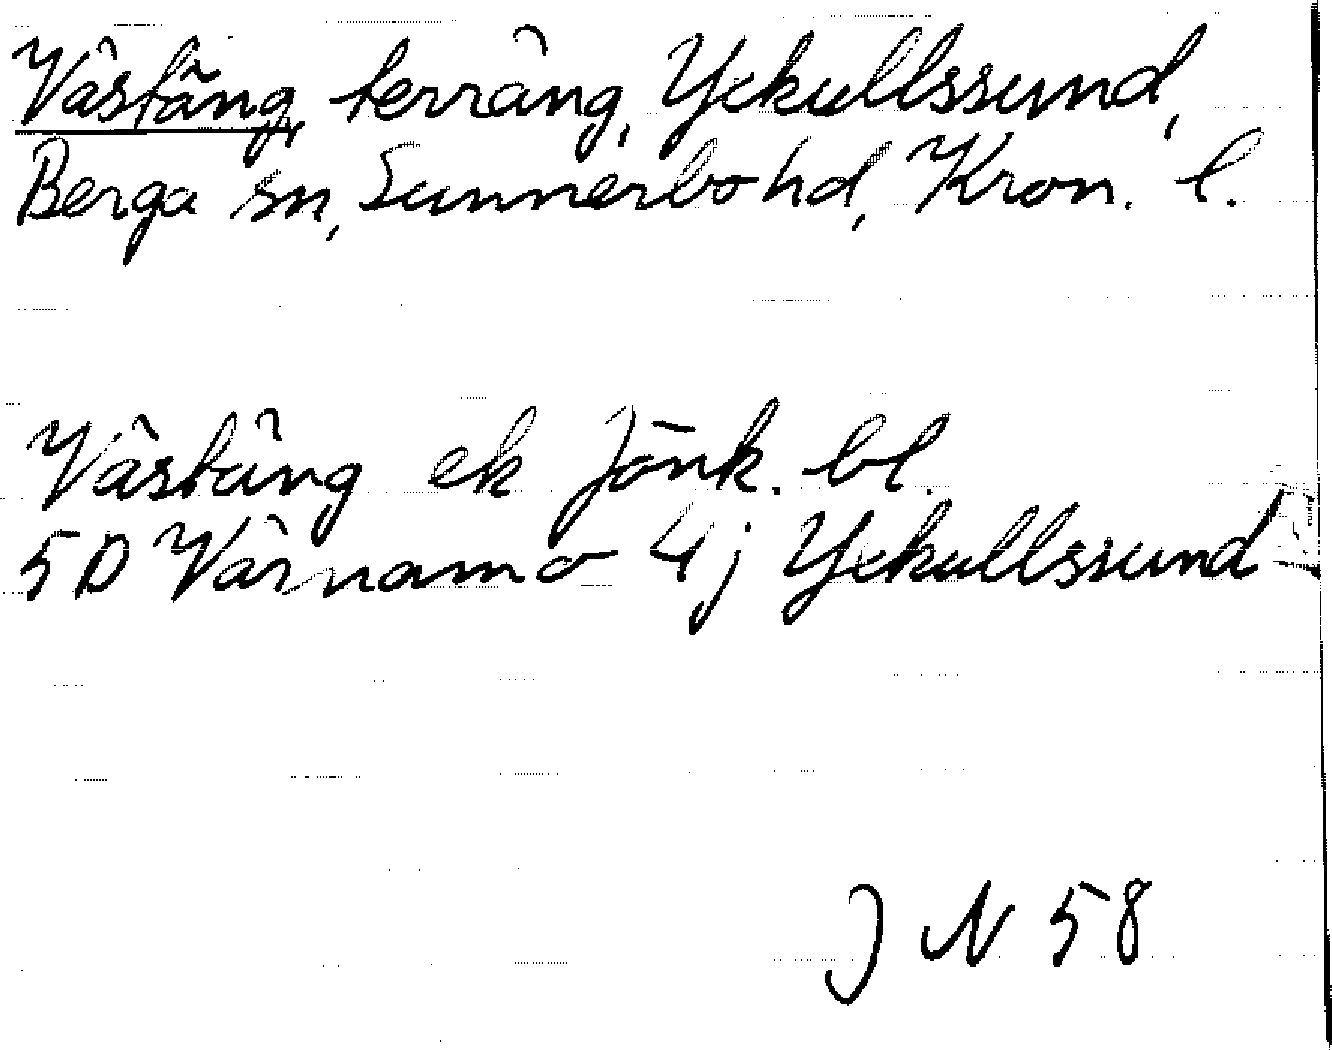 Västäng, terräng, Yxkullssund,
Berga sn, Sunnerbo hd, Kron. l.
Västäng ek Jönk. bl.
5D Värnamo 4j Yxkullssund
J N 58